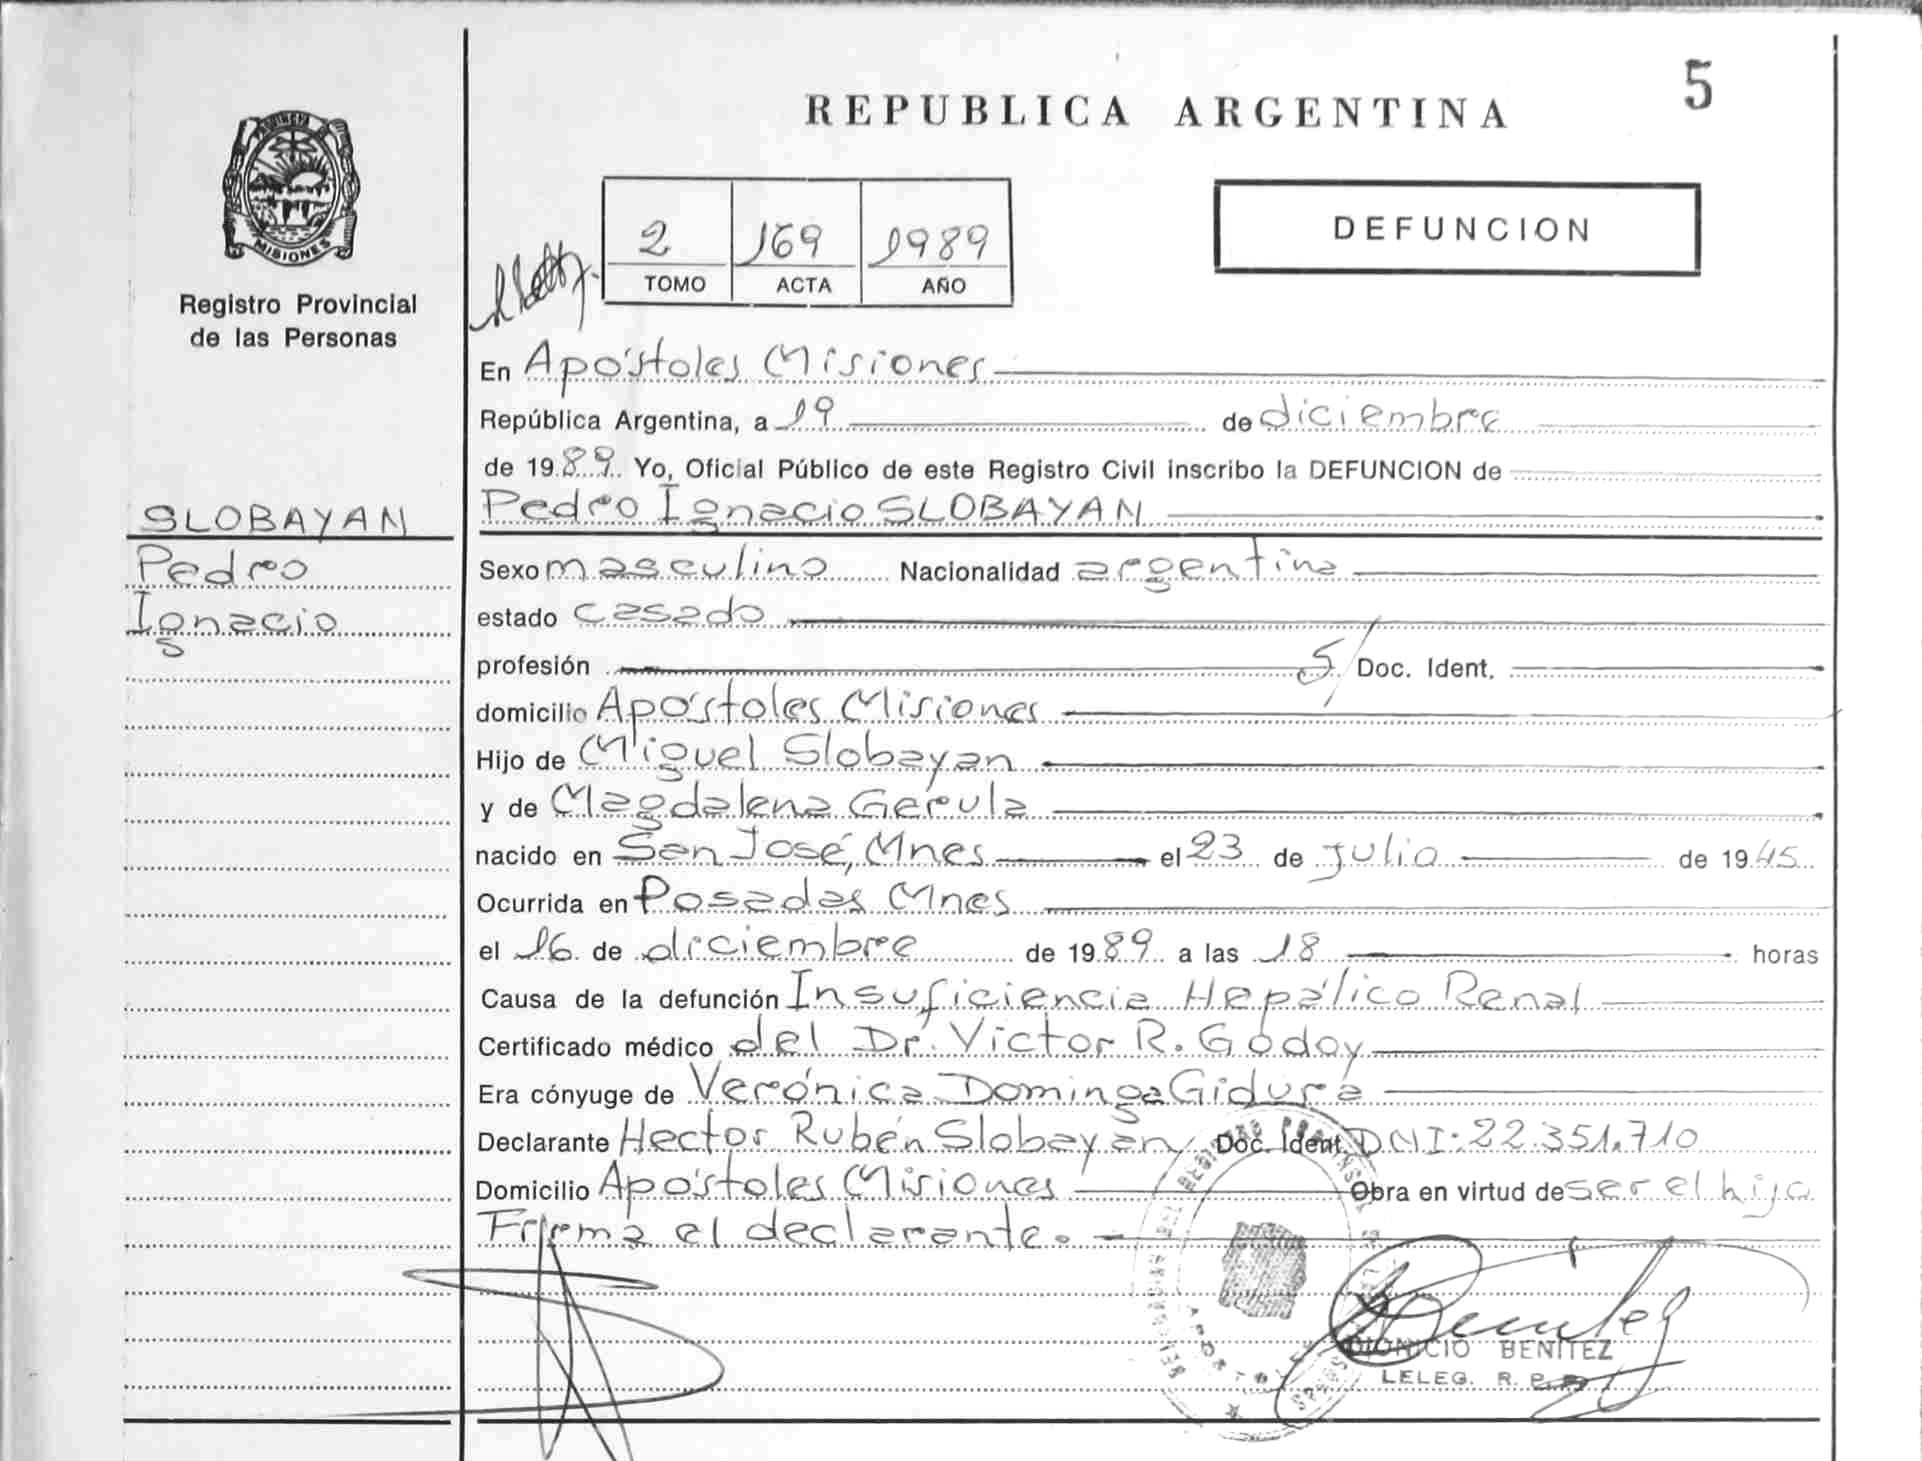 5
REPUBLICA ARGENTINA
PROVINCIA DE
MISIONES
Registro Provincial
de las Personas
2 169 1989
TOMO ACTA AÑO
DEFUNCION
En Apóstoles Misiones
República Argentina, a 19 de diciembre
de 1989 Yo, Oficial Público de este Registro Civil inscribo la DEFUNCION de
SLOBAYAN
Pedro
Ignacio
Pedro Ignacio SLOBAYAN
Sexo masculino Nacionalidad argentina
estado casado
profesión S/ Doc. Ident.
domicilio Apóstoles Misiones
Hijo de Miguel Slobayan
y de Magdalena Gerula
nacido en San José, Mnes el 23 de julio de 1945
Ocurrida en Posadas Mnes
el 16 de diciembre de 1989 a las 18 horas
Causa de la defunción Insuficiencia Hepático Renal
Certificado médico del Dr. Victor R. Godoy
Era cónyuge de Verónica Dominga Gidura
Declarante Hector Rubén Slobayan Doc. Ident. DNI: 22.351.710
Domicilio Apóstoles Misiones Obra en virtud de ser el hijo
Firma el declarante.
DIONICIO BENITEZ
LELEG. R. P.